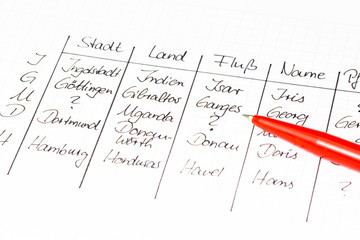 Stadt Land Fluß Name Pf
I Ingolstadt Indien Isar Iris
G Göttingen Gibraltar Ganges Georg
M ? Uganda ?
D Dortmund Donau- Donau Doris
wörth
H Hamburg Honduras Havel Hans